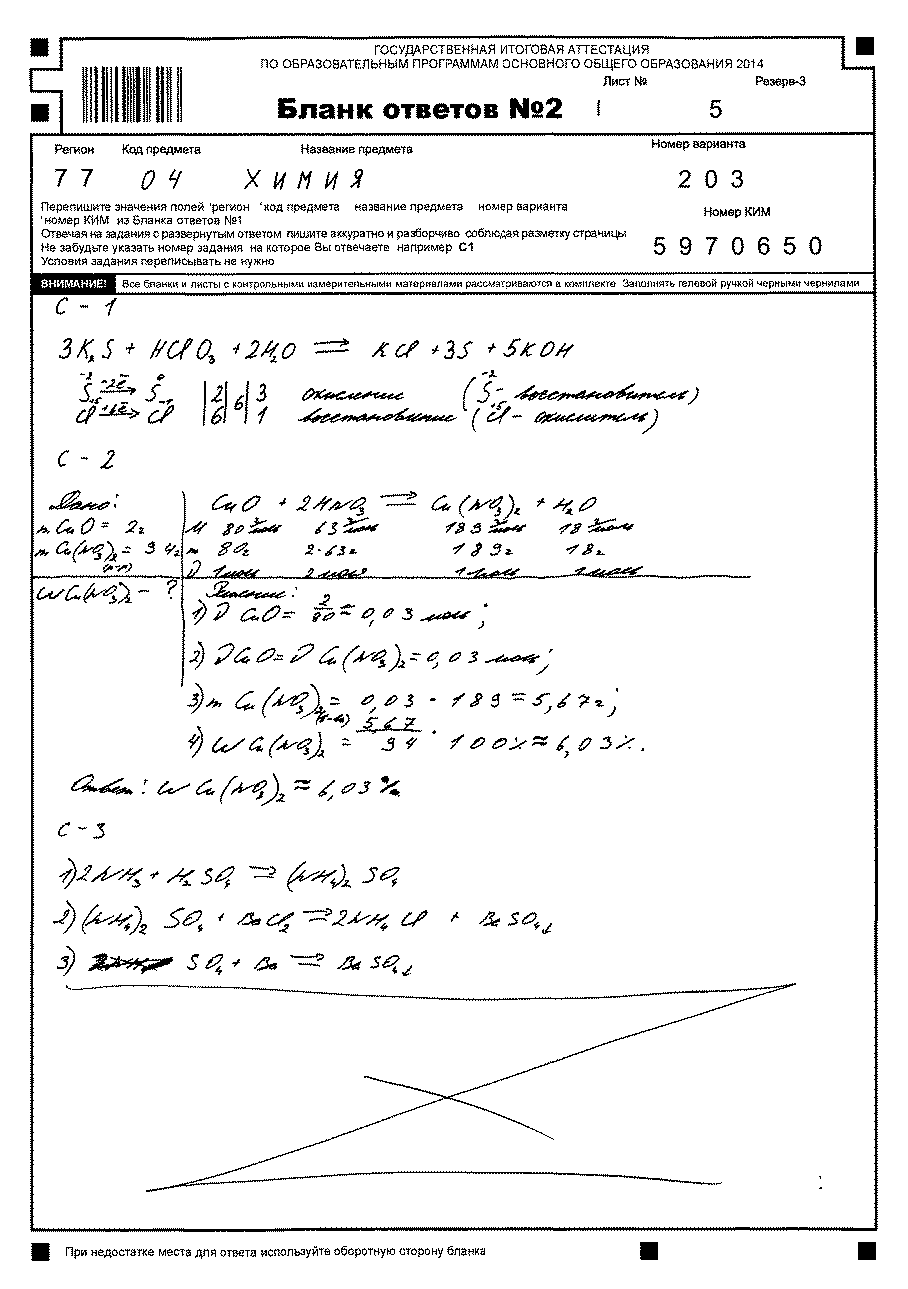 ГОСУДАРСТВЕННАЯ ИТОГОВАЯ АТТЕСТАЦИЯ
ПО ОБРАЗОВАТЕЛЬНЫМ ПРОГРАММАМ ОСНОВНОГО ОБЩЕГО ОБРАЗОВАНИЯ 2014
Лист № Резерв-3
Бланк ответов №2 | 5
Регион Код предмета Название предмета Номер варианта
77 04 ХИМИЯ 203
Перепишите значения полей 'регион 'код предмета название предмета номер варианта
'номер КИМ из Бланка ответов №1
Номер КИМ
Отвечая на задания с развернутым ответом пишите аккуратно и разборчиво соблюдая разметку страницы
Не забудьте указать номер задания на которое Вы отвечаете например С1
5970650
Условия задания переписывать не нужно
ВНИМАНИЕ! Все бланки и листы с контрольными измерительными материалами рассматриваются в комплекте Заполнять гелевой ручкой черными чернилами
С - 1
3K₂S + HClO₃ + 2H₂O ⇒ KCl + 3S + 5KOH
S⁻² –2ē→ S⁰ |2| |3 окисление (S⁻² - восстановитель)
Cl⁺⁵ +6ē→ Cl⁻ |6|6|1 восстановление (Cl⁺⁵ - окислитель)
С - 2
Дано: CuO + 2HNO₃ ⇒ Cu(NO₃)₂ + H₂O
m CuO = 2г M 80 г/моль 63 г/моль 189 г/моль 18 г/моль
m Cu(NO₃)₂ (р-р) = 94г m 80г 2·63г 189г 18г
ν 1моль 2моля 1моль 1моль
ω Cu(NO₃)₂ - ? Решение:
1) ν CuO = 2/80 ≈ 0,03 моль;
2) ν CuO = ν Cu(NO₃)₂ = 0,03 моль;
3) m Cu(NO₃)₂ = 0,03 · 189 = 5,67г;
4) ω Cu(NO₃)₂ = 5,67/94 · 100% ≈ 6,03%.
Ответ: ω Cu(NO₃)₂ ≈ 6,03%
С - 3
1) 2NH₃ + H₂SO₄ ⇒ (NH₄)₂ SO₄
2) (NH₄)₂ SO₄ + BaCl₂ ⇒ 2NH₄Cl + BaSO₄↓
3) SO₄ + Ba ⇒ BaSO₄↓
При недостатке места для ответа используйте оборотную сторону бланка